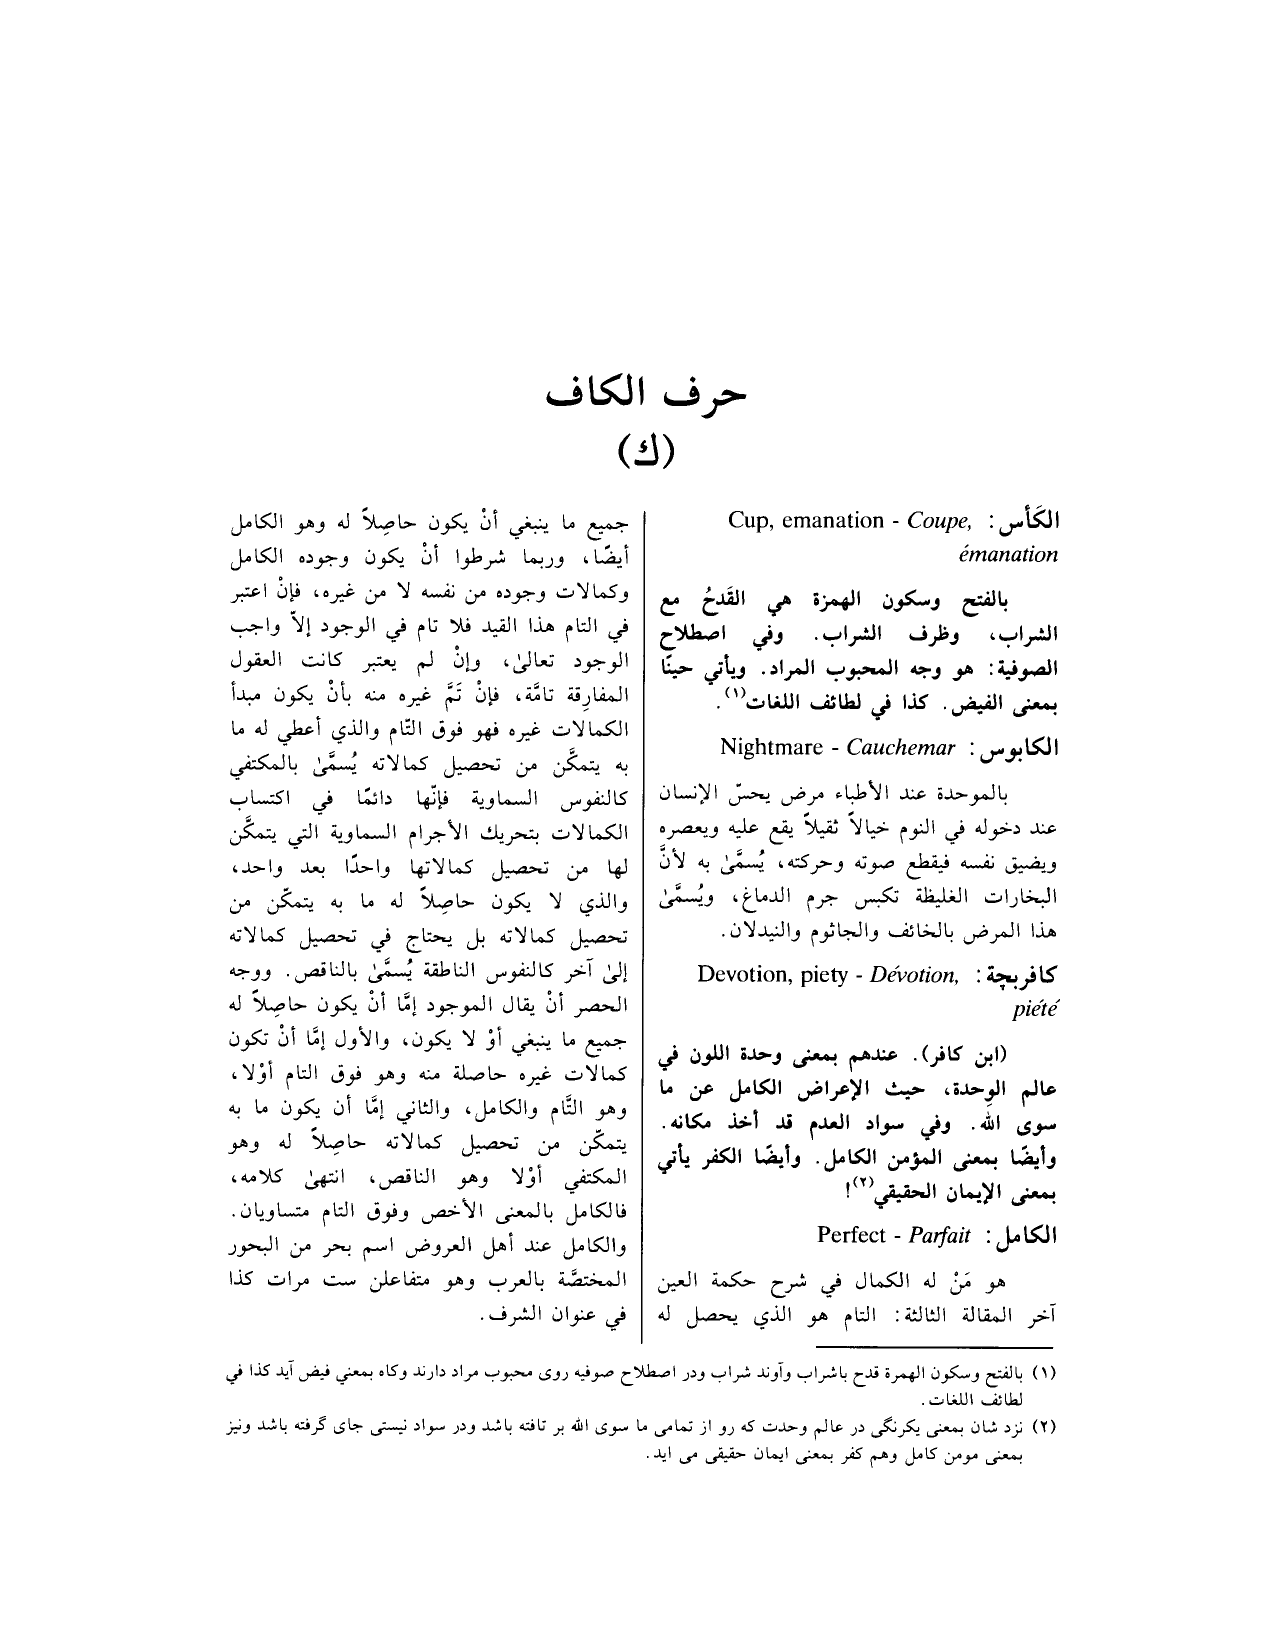 حرف الكاف
(ك)
الكَأس: Cup, emanation - Coupe,
émanation
بالفتح وسكون الهمزة هي القَدحُ مع
الشراب، وظرف الشراب. وفي اصطلاح
الصوفية: هو وجه المحبوب المراد. ويأتي حينًا
بمعنى الفيض. كذا في لطائف اللغات(١).
الكابوس: Nightmare - Cauchemar
بالموحدة عند الأطباء مرض يحسّ الإنسان
عند دخوله في النوم خيالاً ثقيلاً يقع عليه ويعصره
ويضيق نفسه فيقطع صوته وحركته، يُسمَّىٰ به لأنَّ
البخارات الغليظة تكبس جرم الدماغ، ويُسمَّىٰ
هذا المرض بالخائف والجاثوم والنيدلان.
كافربچة: Devotion, piety - Dévotion,
piété
(ابن كافر). عندهم بمعنى وحدة اللون في
عالم الوحدة، حيث الإعراض الكامل عن ما
سوى الله. وفي سواد العدم قد أخذ مكانه.
وأيضًا بمعنى المؤمن الكامل. وأيضًا الكفر يأتي
بمعنى الإيمان الحقيقي(٢)!
الكامل: Perfect - Parfait
هو مَنْ له الكمال في شرح حكمة العين
آخر المقالة الثالثة: التام هو الذي يحصل له
جميع ما ينبغي أنْ يكون حاصِلاً له وهو الكامل
أيضًا، وربما شرطوا أنْ يكون وجوده الكامل
وكمالات وجوده من نفسه لا من غيره، فإنْ اعتبر
في التام هذا القيد فلا تام في الوجود إلاّ واجب
الوجود تعالىٰ، وإنْ لم يعتبر كانت العقول
المفارِقة تامَّة، فإنْ تَمَّ غيره منه بأنْ يكون مبدأ
الكمالات غيره فهو فوق التّام والذي أعطي له ما
به يتمكَّن من تحصيل كمالاته يُسمَّىٰ بالمكتفي
كالنفوس السماوية فإنّها دائمًا في اكتساب
الكمالات بتحريك الأجرام السماوية التي يتمكَّن
لها من تحصيل كمالاتها واحدًا بعد واحد،
والذي لا يكون حاصِلاً له ما به يتمكّن من
تحصيل كمالاته بل يحتاج في تحصيل كمالاته
إلىٰ آخر كالنفوس الناطقة يُسمَّىٰ بالناقص. ووجه
الحصر أنْ يقال الموجود إمَّا أنْ يكون حاصِلاً له
جميع ما ينبغي أوْ لا يكون، والأول إمَّا أنْ تكون
كمالات غيره حاصلة منه وهو فوق التام أوْلا،
وهو التَّام والكامل، والثاني إمَّا أن يكون ما به
يتمكّن من تحصيل كمالاته حاصِلاً له وهو
المكتفي أوْلا وهو الناقص، انتهىٰ كلامه،
فالكامل بالمعنى الأخص وفوق التام متساويان.
والكامل عند أهل العروض اسم بحر من البحور
المختصَّة بالعرب وهو متفاعلن ست مرات كذا
في عنوان الشرف.
(١) بالفتح وسكون الهمرة قدح باشراب وآوند شراب ودر اصطلاح صوفيه روى محبوب مراد دارند وكاه بمعني فيض آيد كذا في
لطائف اللغات.
(٢) نزد شان بمعني يكرنگى در عالم وحدت كه رو از تمامى ما سوى الله بر تافته باشد ودر سواد نيستى جاى گرفته باشد ونيز
بمعنى مومن كامل وهم كفر بمعنى ايمان حقيقى مى ايد.